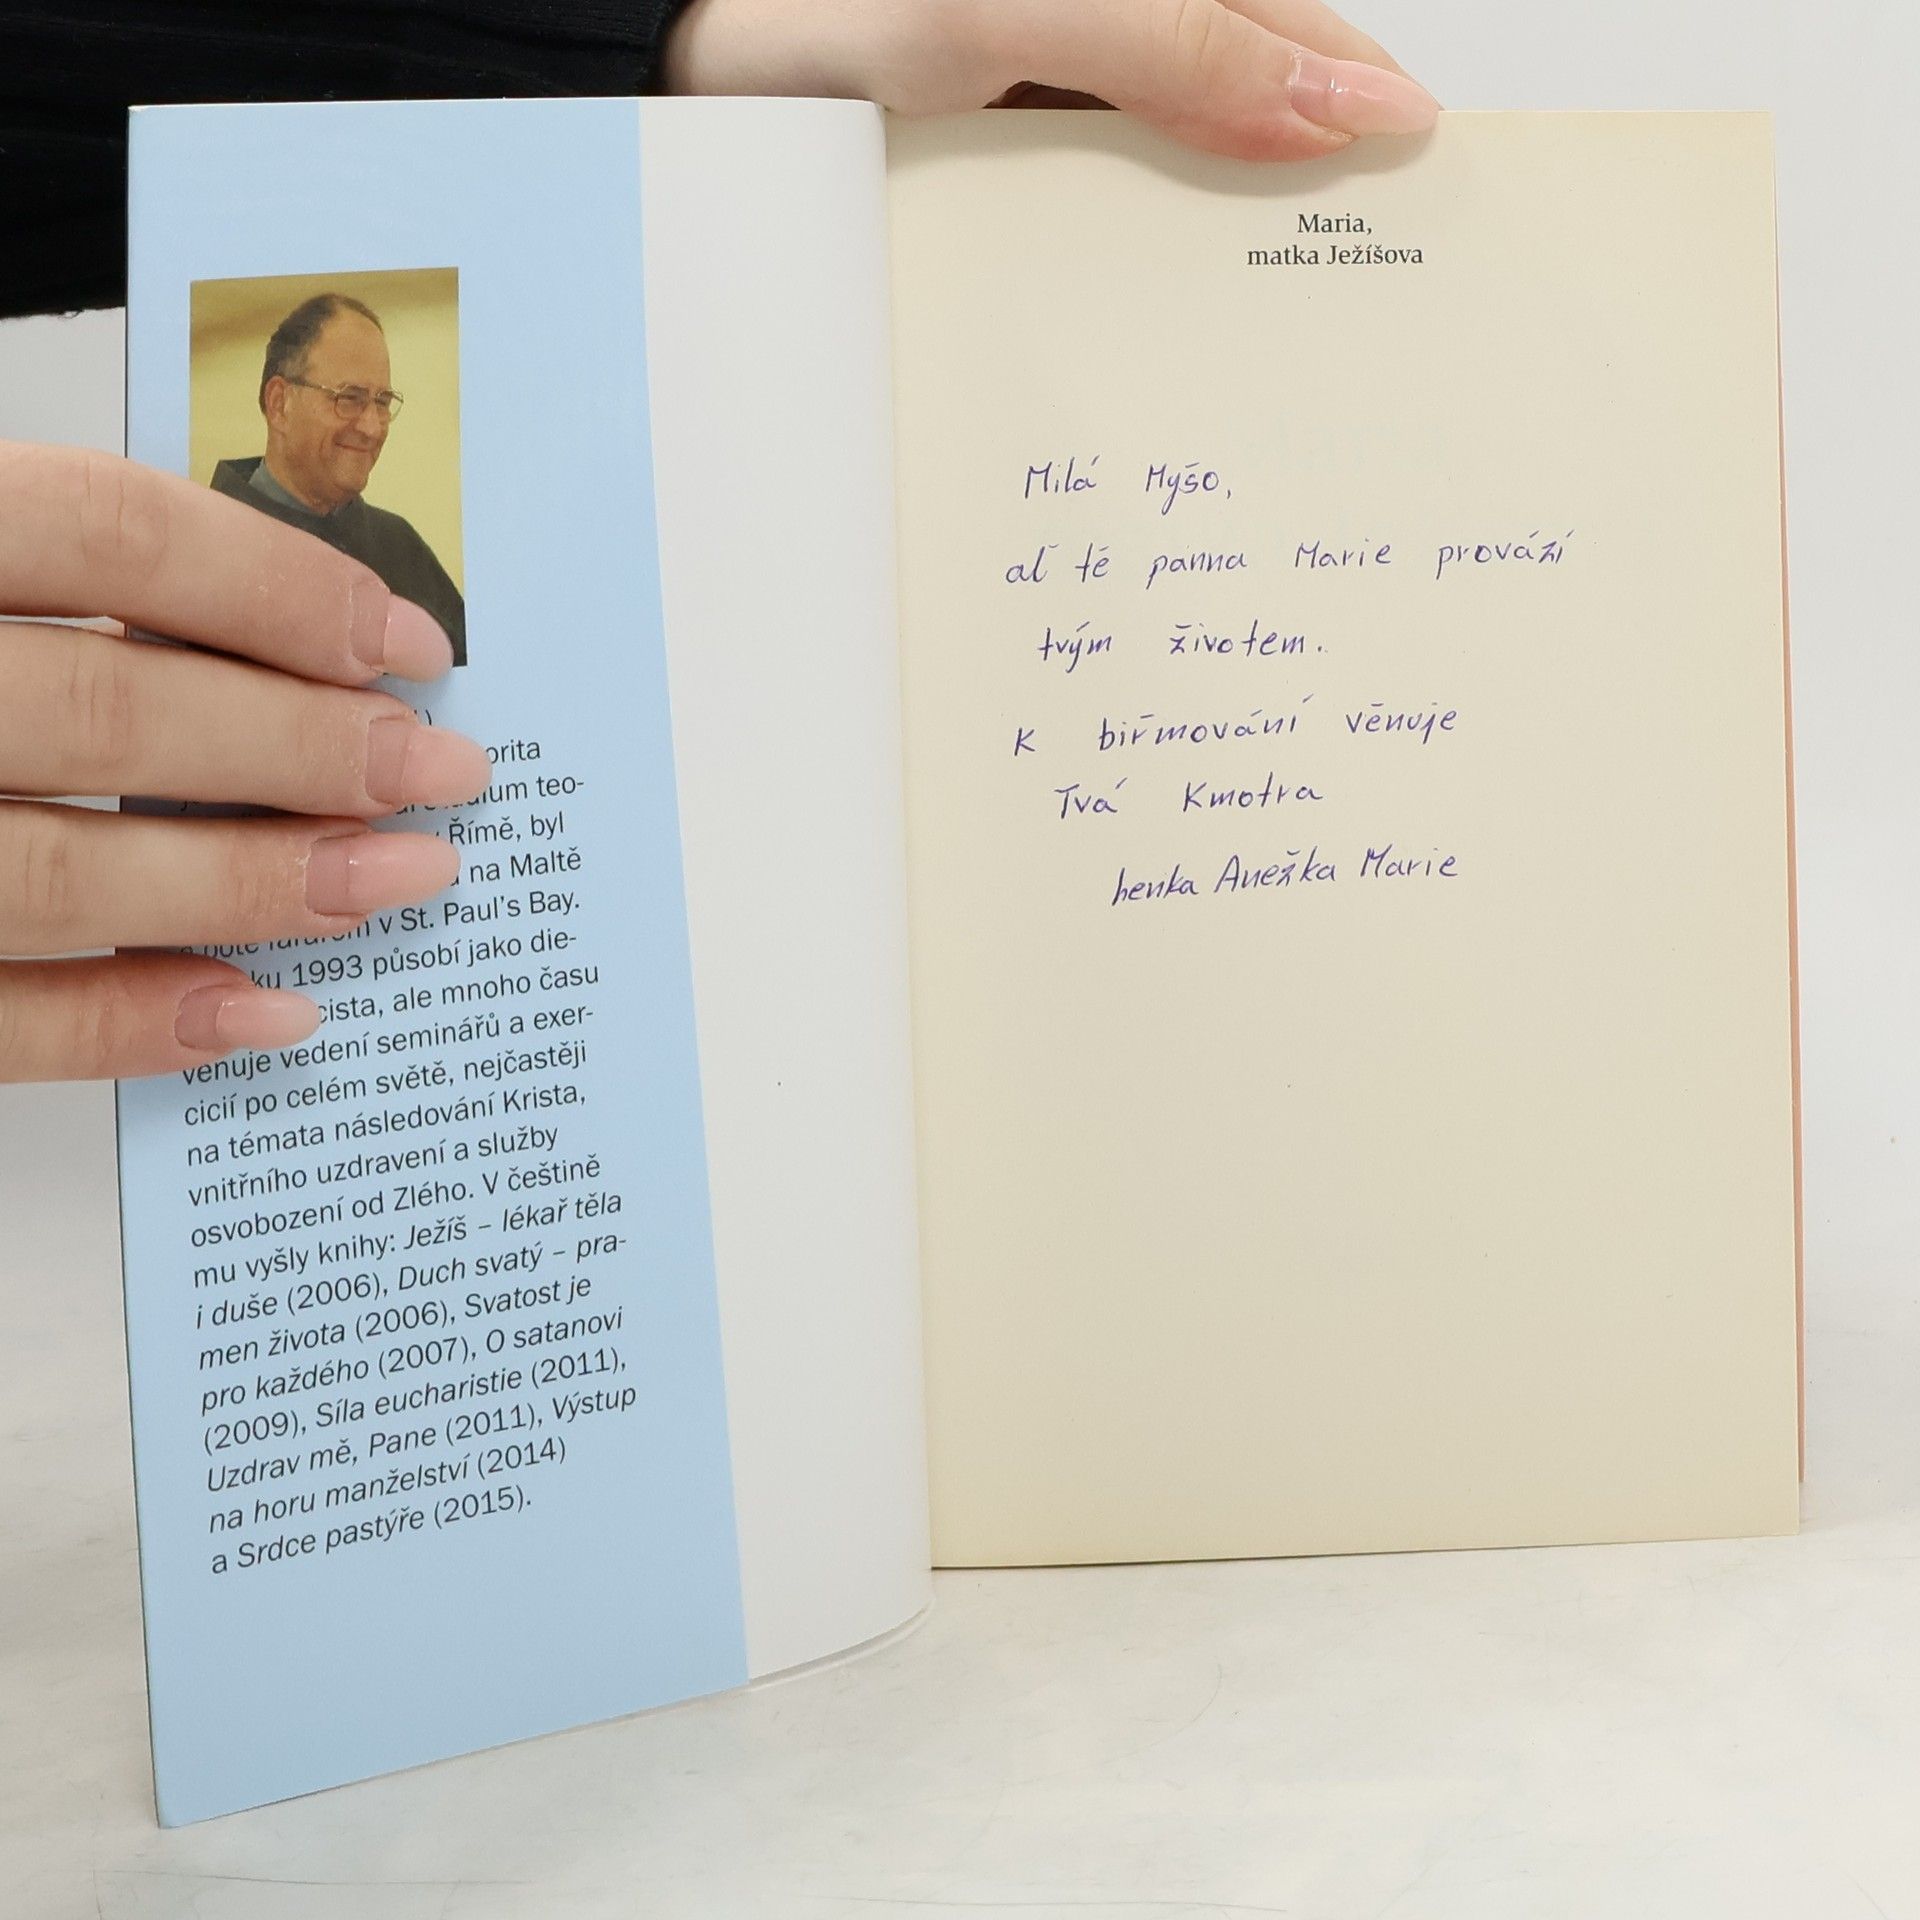 )
orita
ium teo-
Římě, byl
na Maltě
v St. Paul's Bay.
ku 1993 působí jako die-
cista, ale mnoho času
věnuje vedení seminářů a exer-
cicií po celém světě, nejčastěji
na témata následování Krista,
vnitřního uzdravení a služby
osvobození od Zlého. V češtině
mu vyšly knihy: Ježíš – lékař těla
i duše (2006), Duch svatý – pra-
men života (2006), Svatost je
pro každého (2007), O satanovi
(2009), Síla eucharistie (2011),
Uzdrav mě, Pane (2011), Výstup
na horu manželství (2014)
a Srdce pastýře (2015).
Maria,
matka Ježíšova
Milá Myšo,
ať tě panna Marie provází
tvým životem.
K biřmování věnuje
Tvá Kmotra
henka Anežka Marie